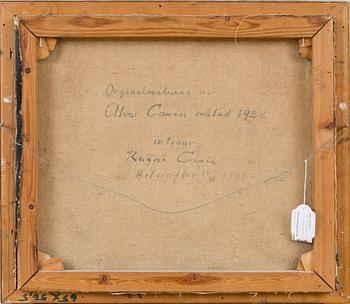 Orginalmålning av
Alvar Cawén målad 1900
intygar
Ragni Cawén
Helsingfors 1940
65 X 56,5